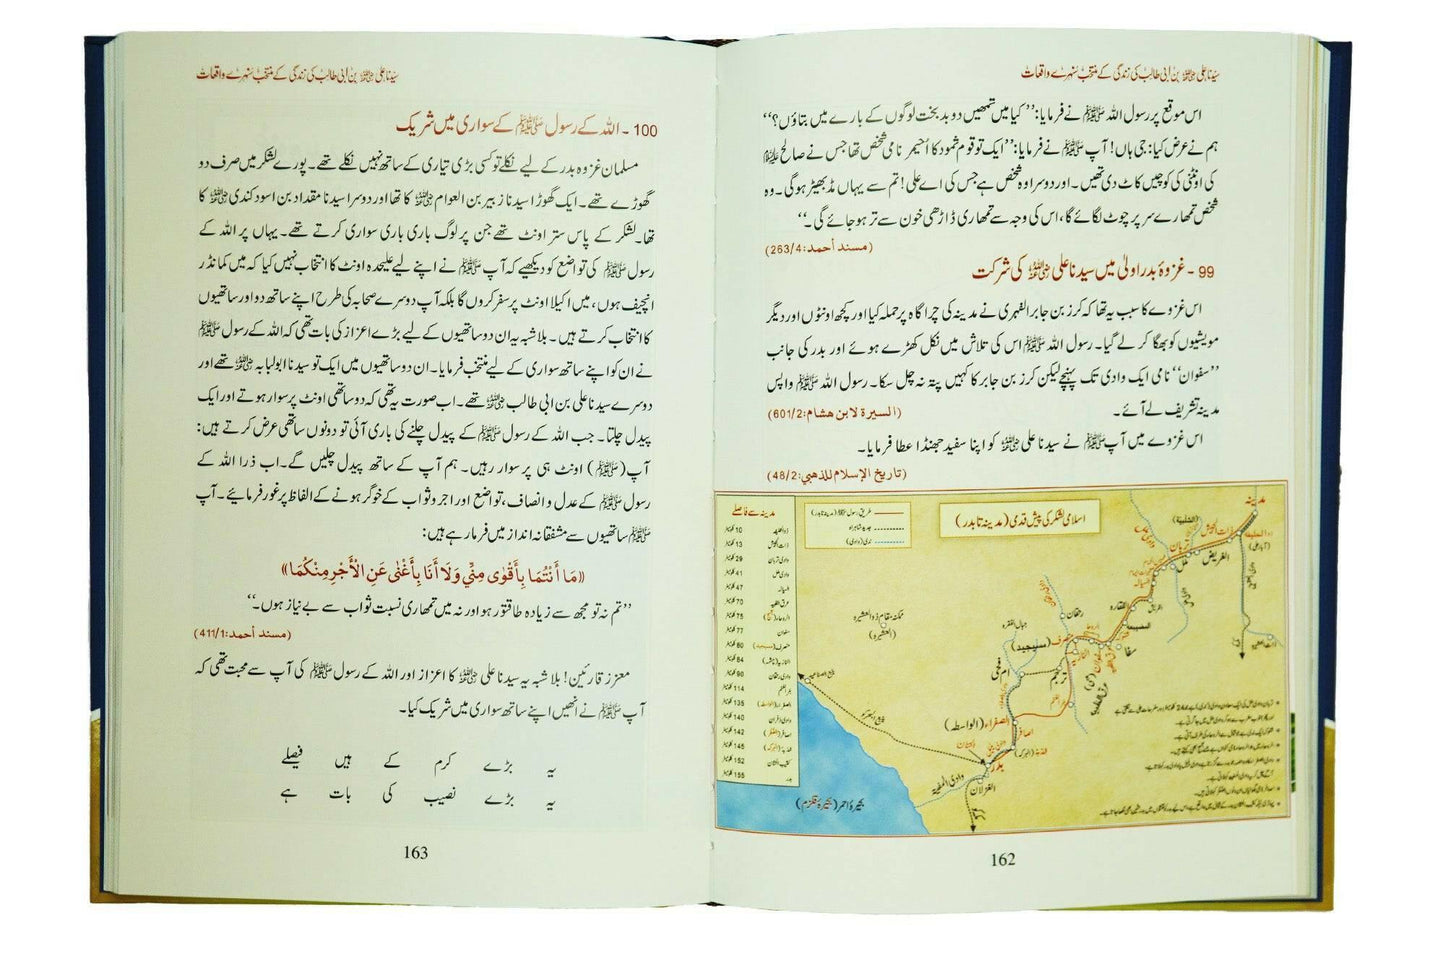 سیدنا علی رضی اللہ عنہ بن ابی طالب کی زندگی کے منتخب سنہرے واقعات
اس موقع پر رسول اللہ ﷺ نے فرمایا: ’’کیا میں تمھیں دو بدبخت لوگوں کے بارے میں بتاؤں؟‘‘
ہم نے عرض کیا: جی ہاں! آپ ﷺ نے فرمایا: ’’ایک تو قوم ثمود کا اُحیمر نامی شخص تھا جس نے صالح علیہ السلام
کی اونٹنی کی کوچیں کاٹ دی تھیں۔ اور دوسرا وہ شخص ہے جس کی اے علی! تم سے یہاں مڈبھیڑ ہوگی۔ وہ
شخص تمھارے سر پر چوٹ لگائے گا، اس کی وجہ سے تمھاری ڈاڑھی خون سے تر ہو جائے گی۔‘‘
(مسند أحمد: 263/4)
99 - غزوۂ بدر اولیٰ میں سیدنا علی رضی اللہ عنہ کی شرکت
اس غزوے کا سبب یہ تھا کہ کرز بن جابر الفہری نے مدینہ کی چراگاہ پر حملہ کیا اور کچھ اونٹوں اور دیگر
مویشیوں کو بھگا کر لے گیا۔ رسول اللہ ﷺ اس کی تلاش میں نکل کھڑے ہوئے اور بدر کی جانب
’’سفوان‘‘ نامی ایک وادی تک پہنچے لیکن کرز بن جابر کا کہیں پتہ نہ چل سکا۔ رسول اللہ ﷺ واپس
مدینہ تشریف لے آئے۔
(السیرۃ لابن ھشام: 601/2)
اس غزوے میں آپ ﷺ نے سیدنا علی رضی اللہ عنہ کو اپنا سفید جھنڈا عطا فرمایا۔
(تاریخ الإسلام للذھبي: 48/2)
اسلامی لشکر کی پیش قدمی (مدینہ تا بدر)
طریق رسول ﷺ (مدینہ تا بدر)
جدید شاہراہ
ندی (وادی)
مدینہ سے فاصلے
ذوالحلیفہ 10 کلومیٹر
ذات الجیش 13 کلومیٹر
وادی تربان 29 کلومیٹر
وادی ملل 41 کلومیٹر
السیالہ 47 کلومیٹر
عرق الظبیہ 70 کلومیٹر
75 کلومیٹر
77 کلومیٹر
80 کلومیٹر
84 کلومیٹر
90 کلومیٹر
114 کلومیٹر
135 کلومیٹر
140 کلومیٹر
142 کلومیٹر
145 کلومیٹر
152 کلومیٹر
بدر 155 کلومیٹر
مدینہ
ذوالحلیفہ
ذات الجیش
تربان
ملل
العریض
الفقارہ
سفا
منصرف (مسیجید)
ام عی
ترجم
الصفراء (الواسطہ)
ممکنہ مقام ذوالعشیرہ
(العشیرہ)
جبال الفقرہ
بدر
الغزلان
مکہ
بحیرۂ احمر (بحیرۂ قلزم)
162
سیدنا علی رضی اللہ عنہ بن ابی طالب کی زندگی کے منتخب سنہرے واقعات
100 - اللہ کے رسول ﷺ کے سواری میں شریک
مسلمان غزوہ بدر کے لیے نکلے تو کسی بڑی تیاری کے ساتھ نہیں نکلے تھے۔ پورے لشکر میں صرف دو
گھوڑے تھے۔ ایک گھوڑا سیدنا زبیر بن العوام رضی اللہ عنہ کا تھا اور دوسرا سیدنا مقداد بن اسود کندی رضی اللہ عنہ کا
تھا۔ لشکر کے پاس ستر اونٹ تھے جن پر لوگ باری باری سواری کرتے تھے۔ یہاں پر اللہ کے
رسول ﷺ کی تواضع کو دیکھیے کہ آپ ﷺ نے اپنے لیے علیحدہ اونٹ کا انتخاب نہیں کیا کہ میں کمانڈر
انچیف ہوں، میں اکیلا اونٹ پر سفر کروں گا بلکہ آپ دوسرے صحابہ کی طرح اپنے ساتھ دو اور ساتھیوں
کا انتخاب کرتے ہیں۔ بلاشبہ یہ ان دو ساتھیوں کے لیے بڑے اعزاز کی بات تھی کہ اللہ کے رسول ﷺ
نے ان کو اپنے ساتھ سواری کے لیے منتخب فرمایا۔ ان دو ساتھیوں میں ایک تو سیدنا ابولبابہ رضی اللہ عنہ تھے اور
دوسرے سیدنا علی بن ابی طالب رضی اللہ عنہ تھے۔ اب صورت یہ تھی کہ دو ساتھی اونٹ پر سوار ہوتے اور ایک
پیدل چلتا۔ جب اللہ کے رسول ﷺ کے پیدل چلنے کی باری آئی تو دونوں ساتھی عرض کرتے ہیں:
آپ (ﷺ) اونٹ ہی پر سوار رہیں۔ ہم آپ کے ساتھ پیدل چلیں گے۔ اب ذرا اللہ کے
رسول ﷺ کے عدل و انصاف، تواضع اور اجر و ثواب کے خوگر ہونے کے الفاظ پر غور فرمائیے۔ آپ
ﷺ ساتھیوں سے مشفقانہ انداز میں فرما رہے ہیں:
«مَا أَنْتُمَا بِأَقْوٰى مِنِّي وَلَا أَنَا بِأَغْنٰى عَنِ الْأَجْرِ مِنْكُمَا»
’’تم نہ تو مجھ سے زیادہ طاقتور ہو اور نہ میں تمھاری نسبت ثواب سے بے نیاز ہوں۔‘‘
(مسند أحمد: 411/1)
معزز قارئین! بلاشبہ یہ سیدنا علی رضی اللہ عنہ کا اعزاز اور اللہ کے رسول ﷺ کی آپ سے محبت تھی کہ
آپ ﷺ نے انھیں اپنے ساتھ سواری میں شریک کیا۔
یہ بڑے کرم کے ہیں فیصلے
یہ بڑے نصیب کی بات ہے
163